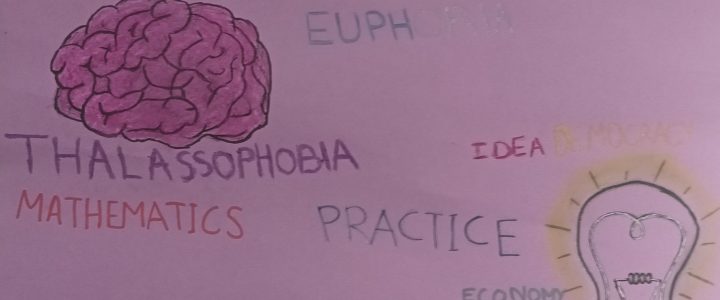 EUPHORIA
THALASSOPHOBIA
IDEA DEMOCRACY
MATHEMATICS
PRACTICE
ECONOMY